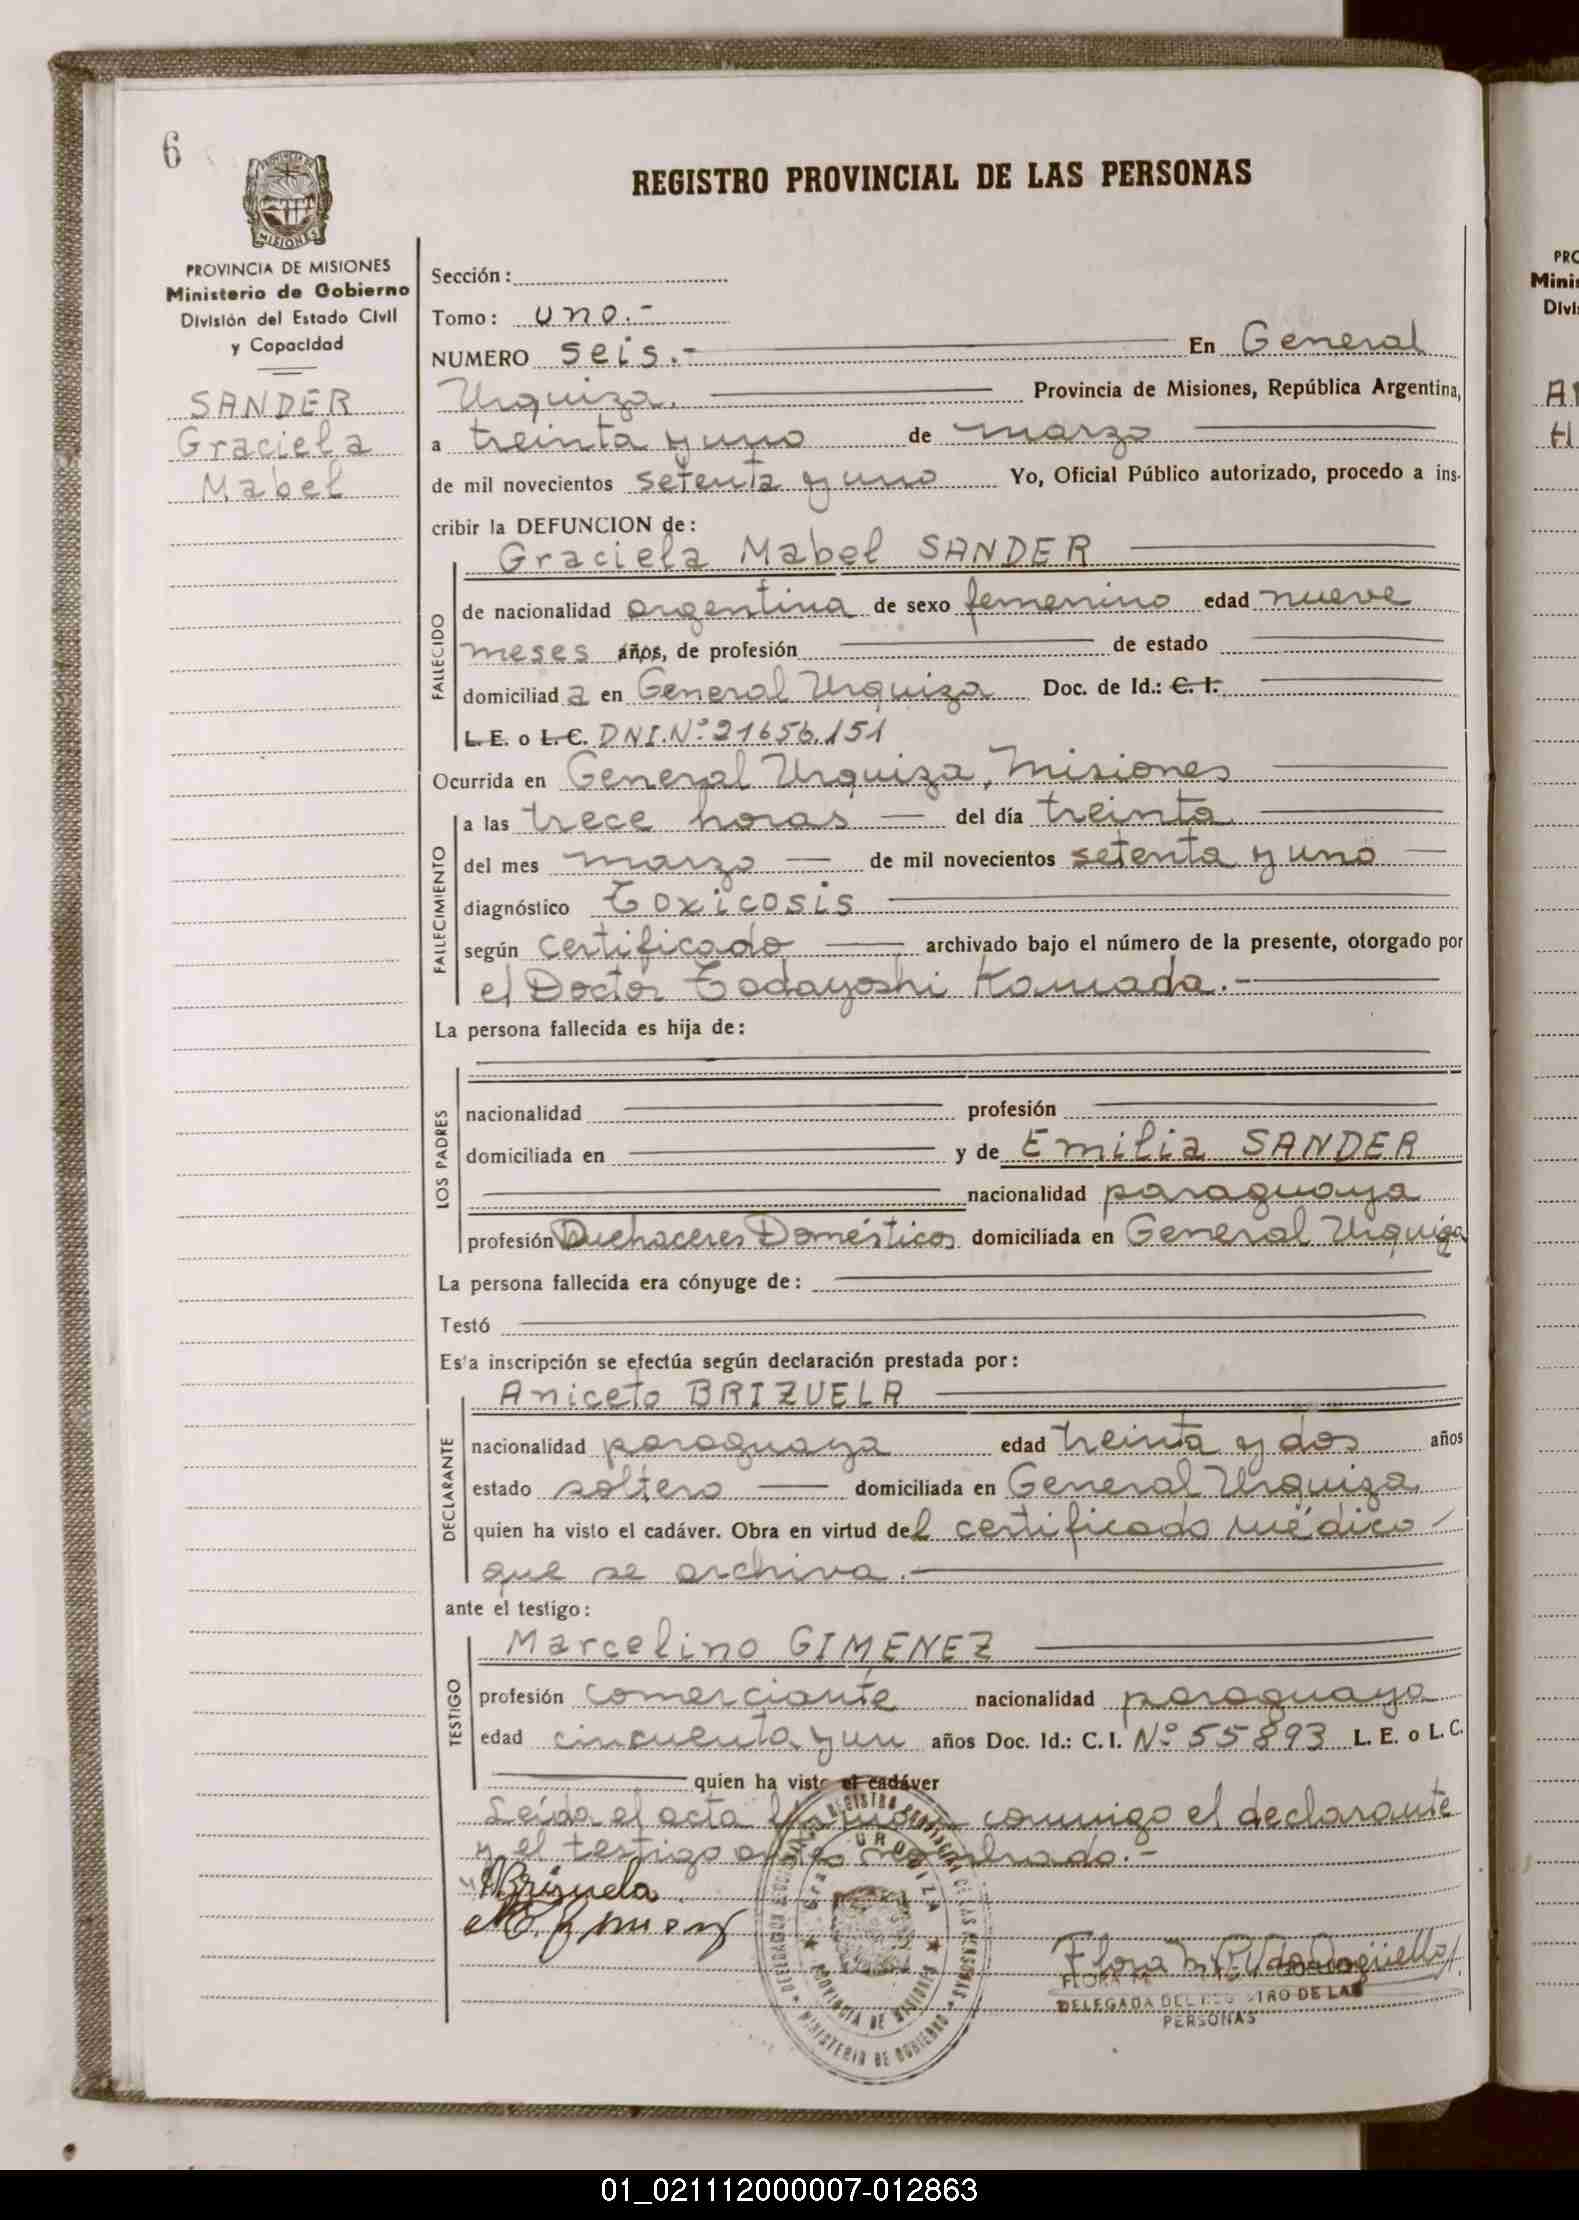 6
PROVINCIA DE
MISIONES
REGISTRO PROVINCIAL DE LAS PERSONAS
PROVINCIA DE MISIONES
Ministerio de Gobierno
División del Estado Civil
y Capacidad
SANDER
Graciela
Mabel
Sección:
Tomo: uno.-
NUMERO seis.- En General
Urquiza. Provincia de Misiones, República Argentina,
a treinta y uno de marzo
de mil novecientos setenta y uno Yo, Oficial Público autorizado, procedo a ins-
cribir la DEFUNCION de:
Graciela Mabel SANDER
FALLECIDO
de nacionalidad argentina de sexo femenino edad nueve
meses años, de profesión de estado
domiciliad a en General Urquiza Doc. de Id.: C. I.
L. E. o L. C. DNI. Nº 21656.151
Ocurrida en General Urquiza, Misiones
FALLECIMIENTO
a las trece horas — del día treinta
del mes marzo — de mil novecientos setenta y uno —
diagnóstico Toxicosis
según certificado archivado bajo el número de la presente, otorgado por
el Doctor Todayoshi Kamada.-
La persona fallecida es hija de:
LOS PADRES
nacionalidad profesión
domiciliada en y de Emilia SANDER
nacionalidad paraguaya
profesión Quehaceres Domésticos domiciliada en General Urquiza
La persona fallecida era cónyuge de:
Testó
Esta inscripción se efectúa según declaración prestada por:
Aniceto BRIZUELA
DECLARANTE
nacionalidad paraguaya edad treinta y dos años
estado soltero — domiciliada en General Urquiza,
quien ha visto el cadáver. Obra en virtud del certificado médico
que se archiva.-
ante el testigo:
Marcelino GIMENEZ
TESTIGO
profesión comerciante nacionalidad paraguaya
edad cincuenta y un años Doc. Id.: C. I. Nº 55893 L. E. o L. C.
quien ha visto el cadáver
Leída el acta conmigo el declarante
y el testigo antes nombrado.-
ABrizuela
M. Gimenez
REGISTRO PROVINCIAL DE LAS PERSONAS
Gral URQUIZA
PROVINCIA DE MISIONES
MINISTERIO DE GOBIERNO
Flora
FLORA
DELEGADA DEL REGISTRO DE LAS
PERSONAS
PRO
Minis
Divi
01_021112000007-012863